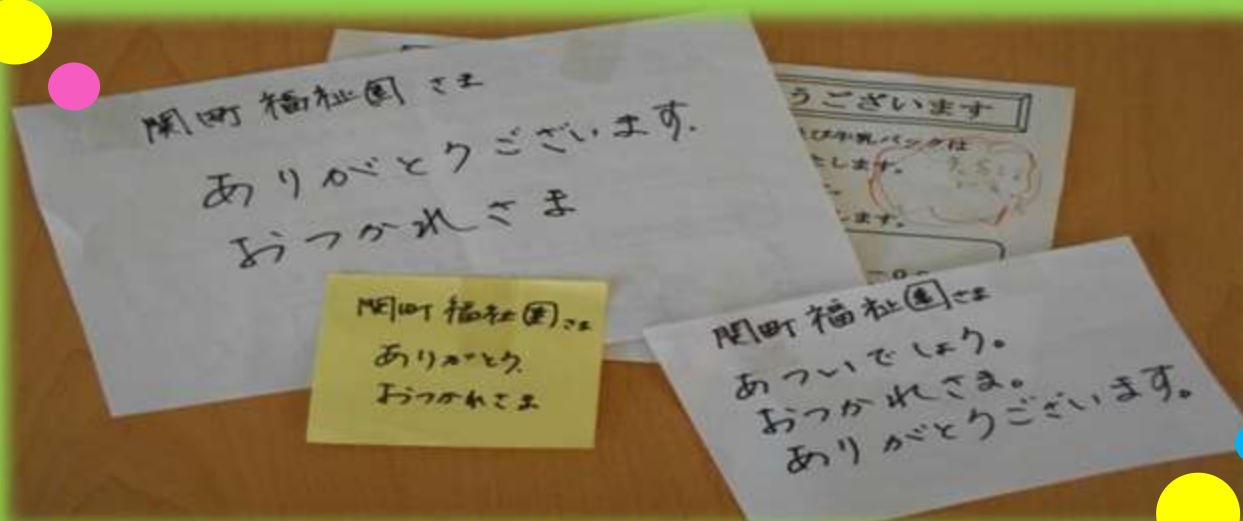 関町福祉園さま
ありがとうございます.
おつかれさま
うございます
び牛乳パックは
たします。
します。
関町福祉園さま
ありがとう.
おつかれさま
関町福祉園さま
あついでしょう。
おつかれさま。
ありがとうございます。